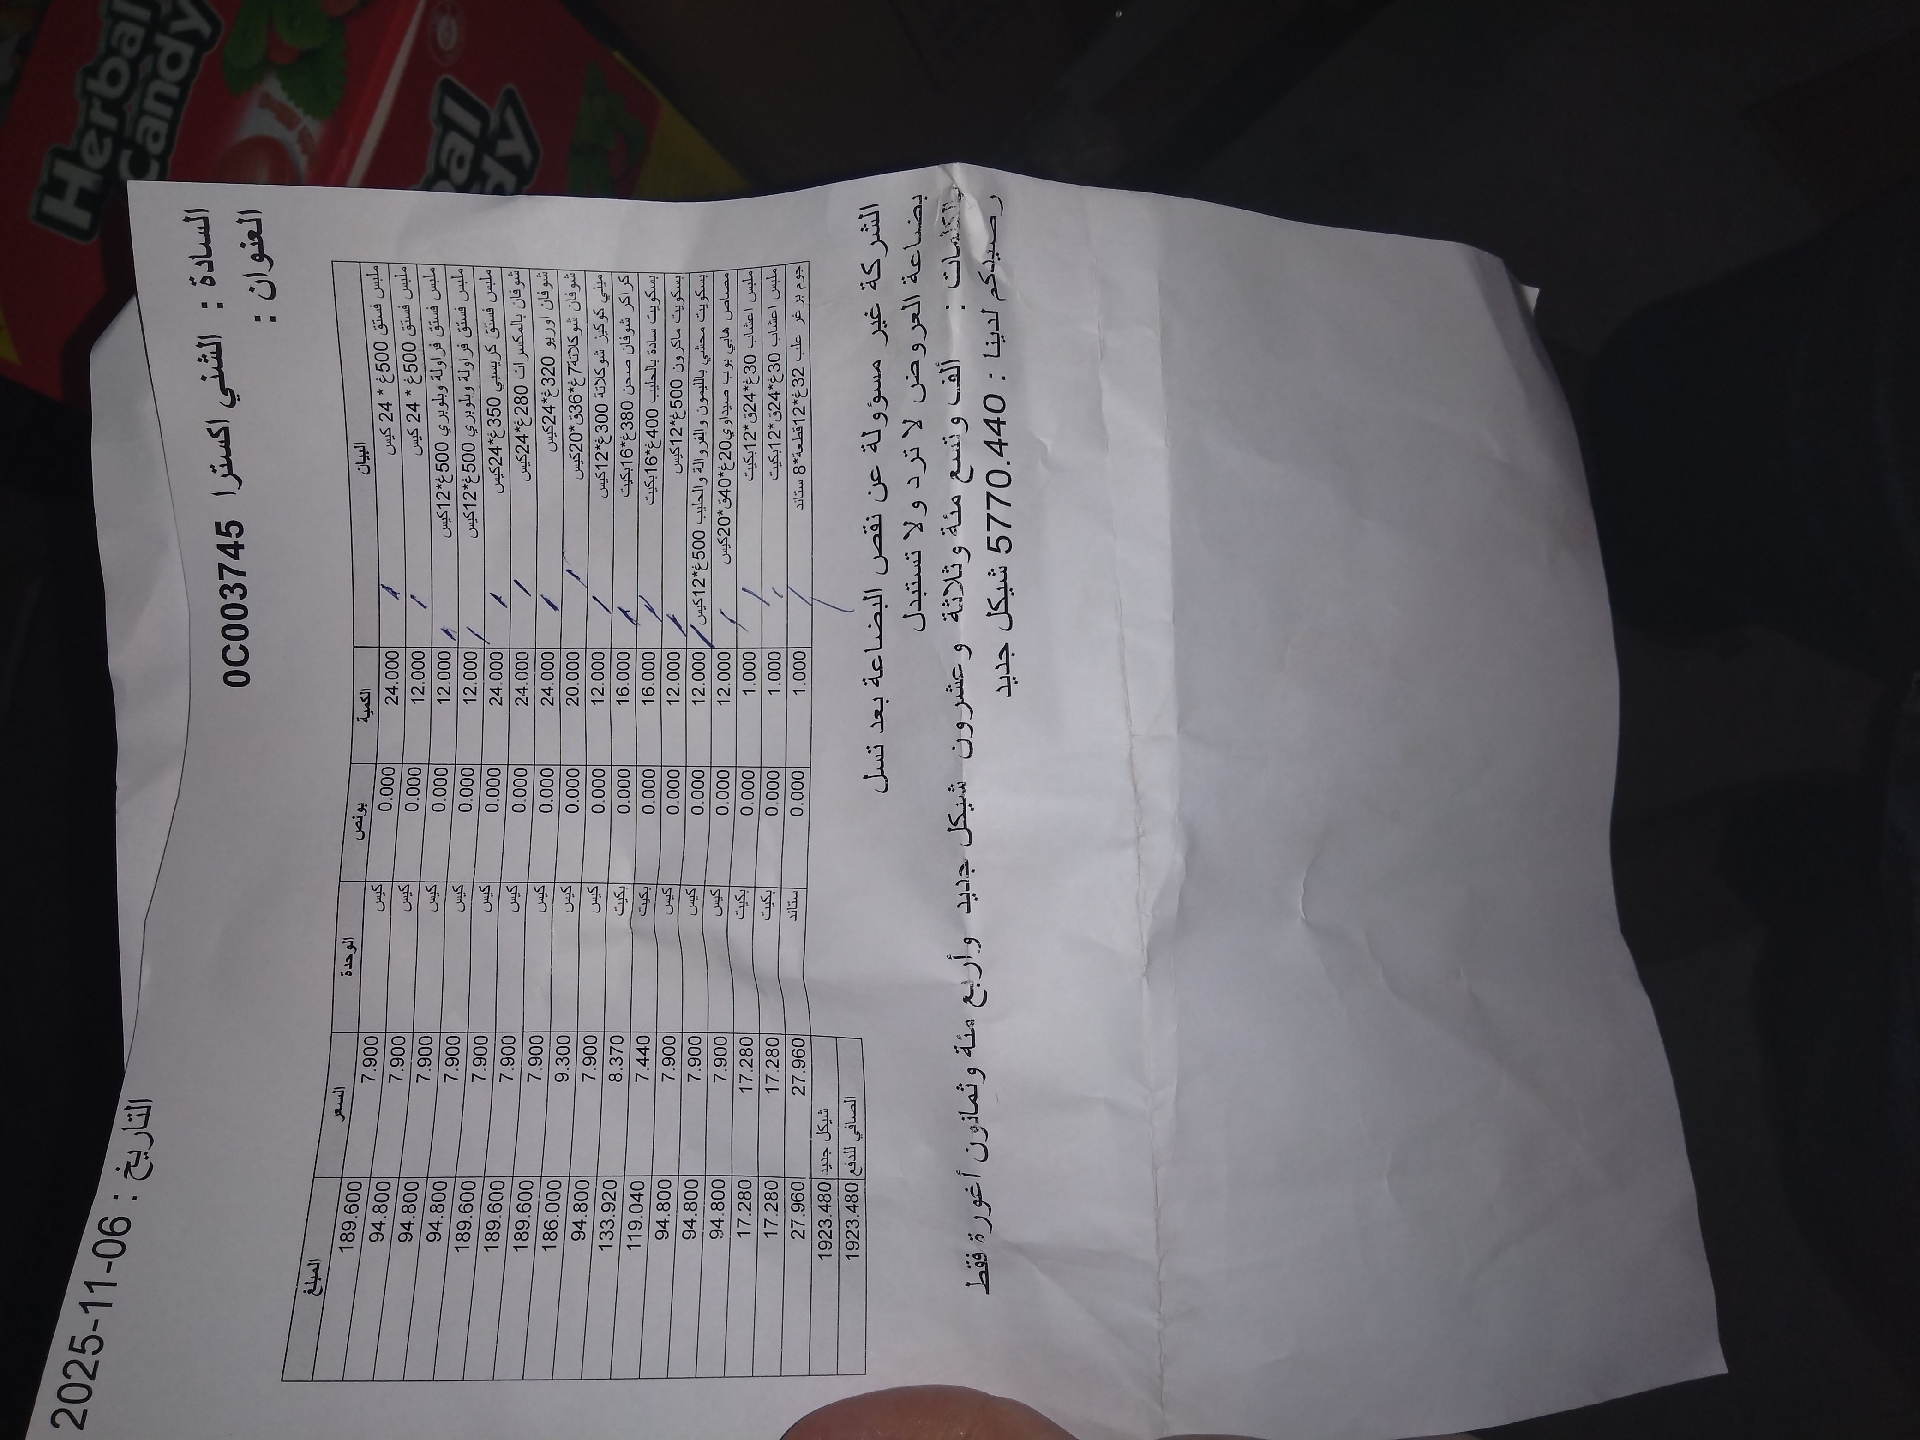 Herbal
Candy
السادة : الشني اكسترا 0C003745
التاريخ : 2025-11-06
العنوان :
البيان الكمية بونص الوحدة السعر المبلغ
ملبس فستق 500غ * 24 كيس 24.000 0.000 كيس 7.900 189.600
ملبس فستق 500غ * 24 كيس 12.000 0.000 كيس 7.900 94.800
ملبس فستق فراولة وبلوبري 500غ*12كيس 12.000 0.000 كيس 7.900 94.800
ملبس فستق فراولة وبلوبري 500غ*12كيس 12.000 0.000 كيس 7.900 94.800
ملبس فستق كريسبي 350غ*24كيس 24.000 0.000 كيس 7.900 189.600
شوفان بالمكسرات 280غ*24كيس 24.000 0.000 كيس 7.900 189.600
شوفان اوريو 320غ*24كيس 24.000 0.000 كيس 7.900 189.600
شوفان شوكلاتة 7غ*36ق*20كيس 20.000 0.000 كيس 9.300 186.000
ميني كوكيز شوكلاتة 300غ*12كيس 12.000 0.000 كيس 7.900 94.800
كراكر شوفان صحن 380غ*16بكيت 16.000 0.000 بكيت 8.370 133.920
بسكويت سادة بالحليب 400غ*16بكيت 16.000 0.000 بكيت 7.440 119.040
بسكويت ماكرون 500غ*12كيس 12.000 0.000 كيس 7.900 94.800
بسكويت محشي بالليمون والفروالة والحليب 500غ*12كيس 12.000 0.000 كيس 7.900 94.800
مصاص هابي بوب صيداوي 20غ*40ق*20كيس 12.000 0.000 كيس 7.900 94.800
ملبس اعشاب 30غ*24ق*12بكيت 1.000 0.000 بكيت 17.280 17.280
ملبس اعشاب 30غ*24ق*12بكيت 1.000 0.000 بكيت 17.280 17.280
جوم برغر علب 32غ*12قطعة*8 ستاند 1.000 0.000 ستاند 27.960 27.960
شيكل جديد 1923.480
الصافي للدفع 1923.480
الشركة غير مسؤولة عن نقص البضاعة بعد تسل
بضاعة العروض لا ترد ولا تستبدل
بالكلمات : ألف وتسع مئة وثلاثة وعشرون شيكل جديد وأربع مئة وثمانون أغورة فقط
رصيدكم لدينا : 5770.440 شيكل جديد